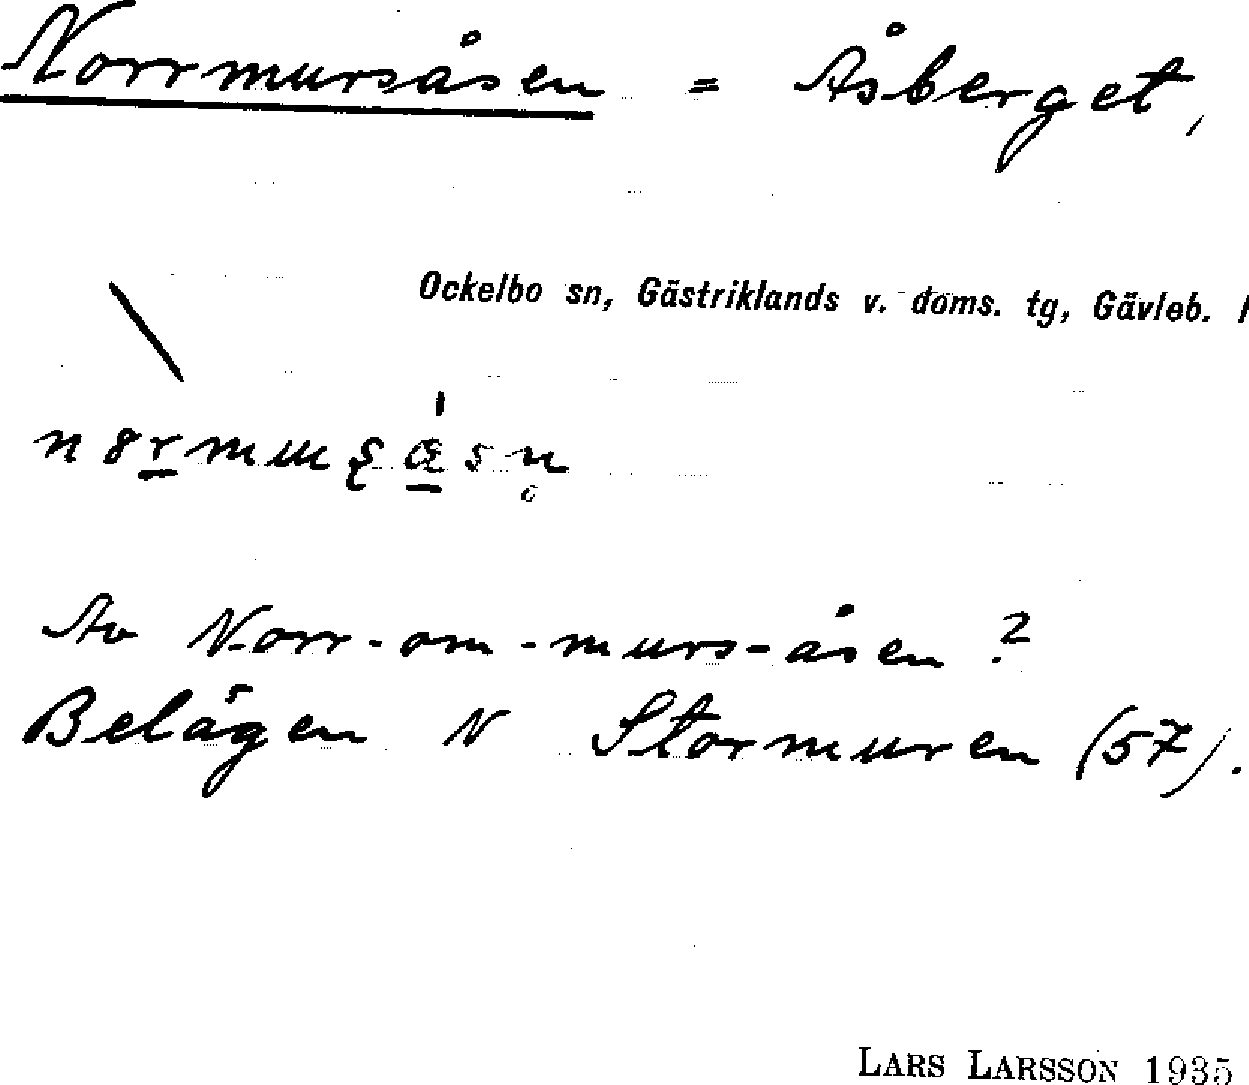 Norrmursåsen = Åsberget,
Ockelbo sn, Gästriklands v. doms. tg, Gävleb. l
Av Norr-om-murs-åsen?
Belägen N Stormuren (57).
LARS LARSSON 1935